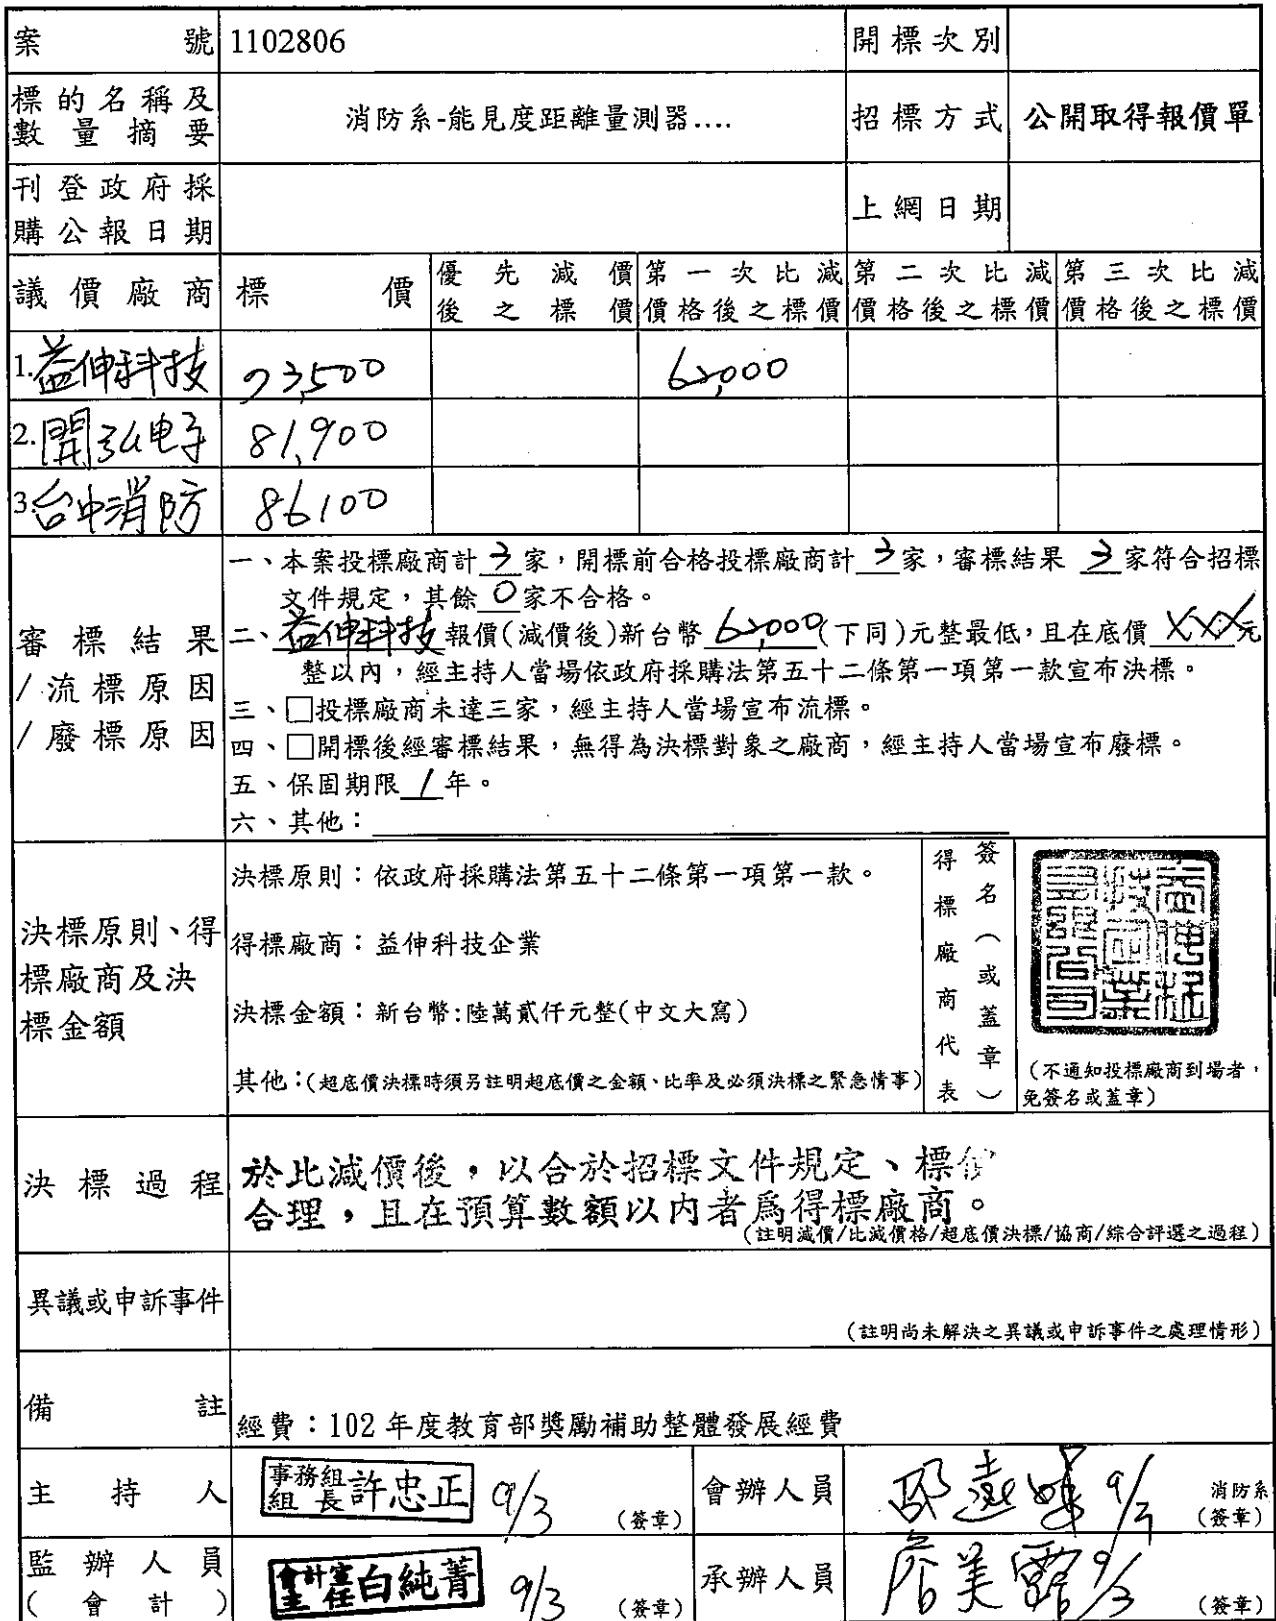 案號 1102806 開標次別
標的名稱及 數量摘要 消防系-能見度距離量測器.... 招標方式 公開取得報價單
刊登政府採 購公報日期 上網日期
議價廠商 標價 優先減價 後之標價 第一次比減 價格後之標價 第二次比減 價格後之標價 第三次比減 價格後之標價
1.益伸科技 73,500 62,000
2.開弘电子 81,900
3.台中消防 86100
審標結果
/流標原因
/廢標原因
一、本案投標廠商計 3 家，開標前合格投標廠商計 3 家，審標結果 3 家符合招標
文件規定，其餘 0 家不合格。
二、益伸科技 報價(減價後)新台幣 62,000 (下同)元整最低，且在底價 XXX 元
整以內，經主持人當場依政府採購法第五十二條第一項第一款宣布決標。
三、□投標廠商未達三家，經主持人當場宣布流標。
四、□開標後經審標結果，無得為決標對象之廠商，經主持人當場宣布廢標。
五、保固期限 1 年。
六、其他：
決標原則、得
標廠商及決
標金額
決標原則：依政府採購法第五十二條第一項第一款。
得標廠商：益伸科技企業
決標金額：新台幣:陸萬貳仟元整(中文大寫)
其他：(超底價決標時須另註明超底價之金額、比率及必須決標之緊急情事)
得標廠商代表
簽名（或蓋章）
益伸科
技企業
(不通知投標廠商到場者，
免簽名或蓋章)
決標過程
於比減價後，以合於招標文件規定、標價
合理，且在預算數額以内者為得標廠商。
(註明減價/比減價格/超底價決標/協商/綜合評選之過程)
異議或申訴事件
(註明尚未解決之異議或申訴事件之處理情形)
備註
經費：102 年度教育部獎勵補助整體發展經費
主持人 事務組 組長 許忠正 9/3 (簽章) 會辦人員 消防系 (簽章)
監辦人員 (會計) 會計室 主任 白純菁 9/3 (簽章) 承辦人員 詹美露 9/3 (簽章)